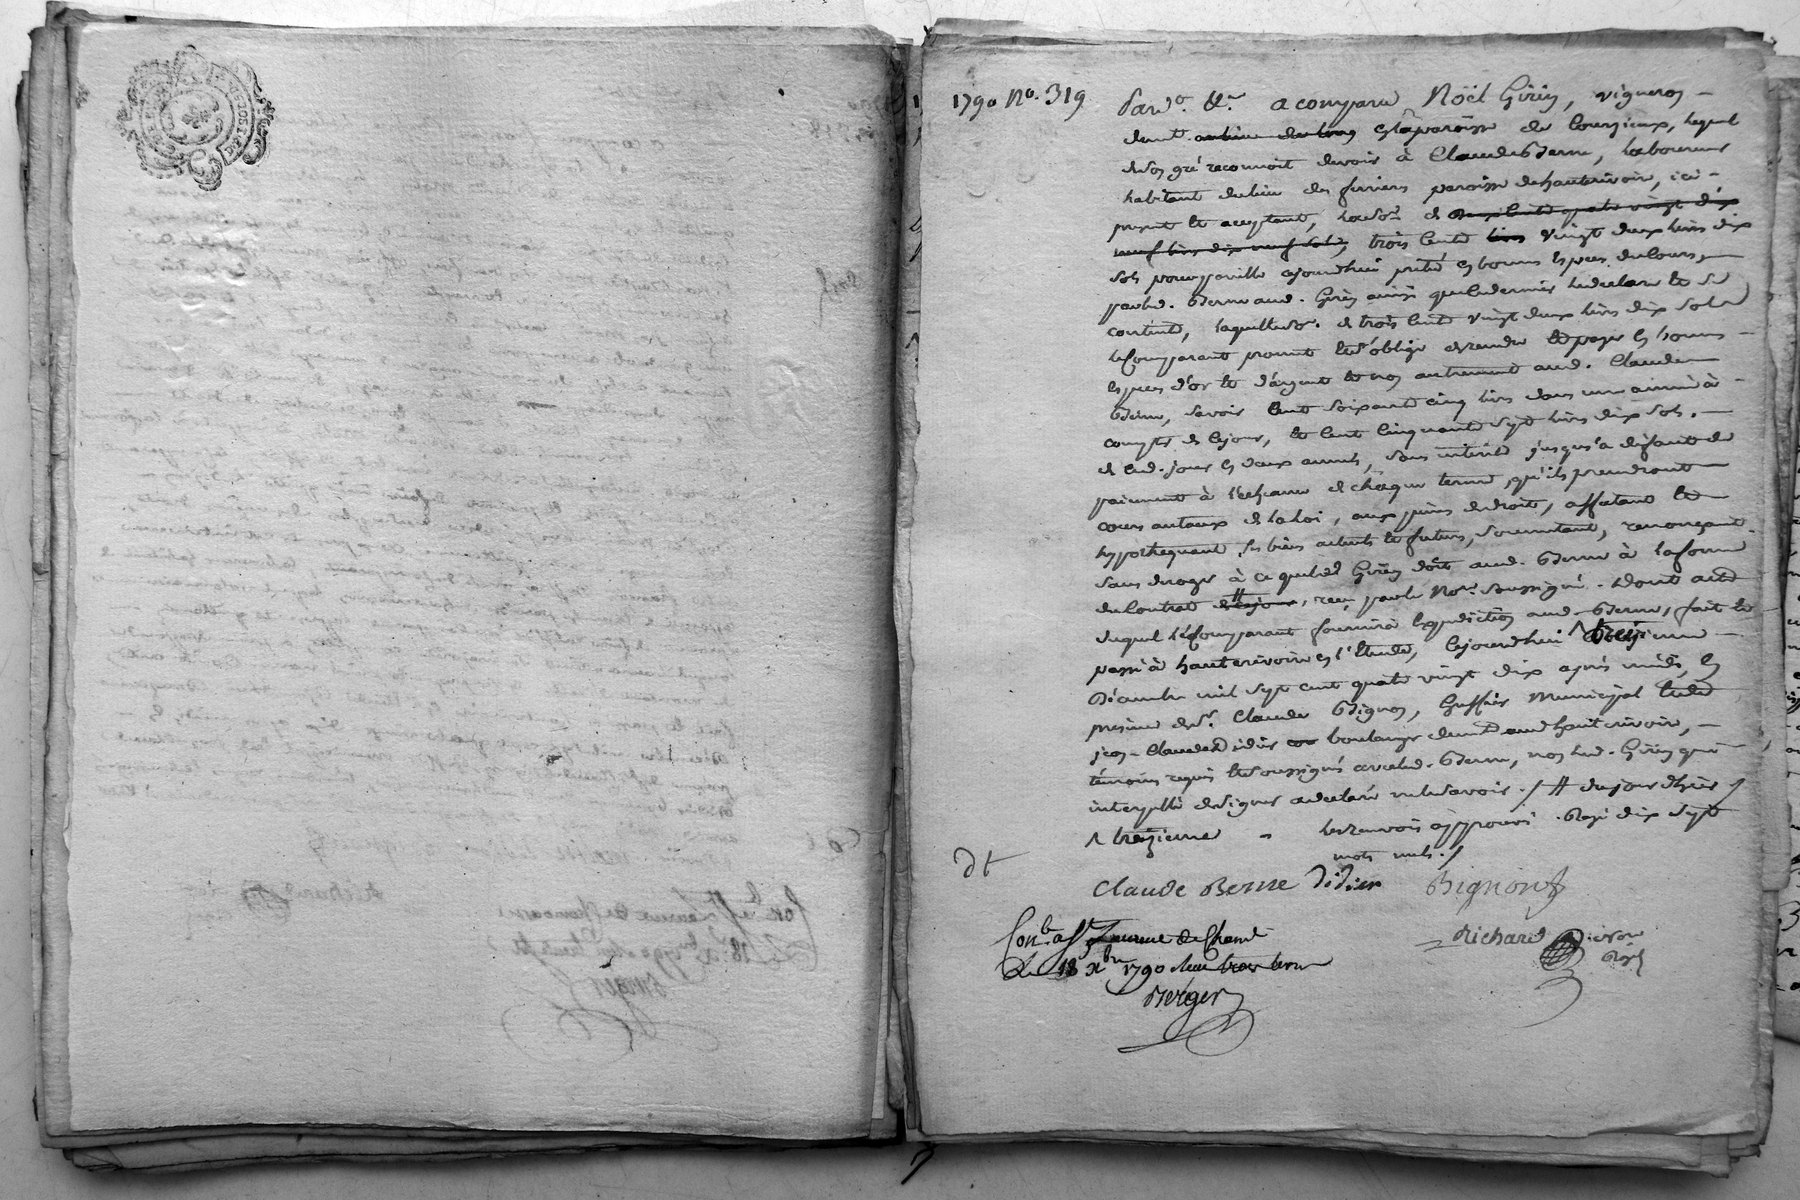 1790 No. 319
Pard.t &.a a comparu Noël Girin, vigneron
demt. en la paroisse de Courzieux, lequel
de son gré reconnoit devoir à Claude Berne, laboureur
habitant du lieu des ferriers paroisse de hauterivoire, ici
present et acceptant, la so.e de deux cents quatre vingt dix
neuf livres dix neuf sols, trois cents livres vingt deux livres dix
sols pour pareille ajourdhui prété en bonnes especes du cours,
par led. Berne aud. Girin ainsi que ce dernier le declare et s'en
contente, laquelle so.e de trois cents vingt deux livres dix sols
le comparant promet et s'oblige de rendre et payer en bonnes
especes d'or et d'argent et non autrement aud. Claude
Berne, savoir cent soixante cinq livres dans une année à
compter de ce jour, et cent cinquante sept livres dix sols
de ced. jour en deux années, sans intérêts jusqu'à défaut de
paiement à l'échéance de chaque terme, qu'ils prendront
cours au taux de la loi, aux peines de droit, affectant et
hypothequant ses biens actuels et futurs, soumettant, renonçant
sans deroger à ce que led. Girin doit aud. Berne à la forme
du contrat de ce jour, reçu par le No.re soussigné. Dont acte
duquel le comparant fournira expedition aud. Berne, fait et
passé à hauterivoire en l'étude, cejourdhui
Décembre mil sept cent quatre vingt dix après midi, en
presence de s.r Claude Bignon, Greffier Municipal et de
jean-Claude didier boulanger demt. aud. hauterivoire,
témoins requis et soussignés avec led. Berne, non led. Girin qui
interpellé de signer a declaré ne le savoir ./ # du jour d'hier /
^ treizieme - les renvois approuvés. Rayé dix sept
mots nuls ./
dt
Claude Berne Didier Bignon
Richard
Con.lé a St Laurent de Cham.t
Le 18 Xbre 1790
Berger